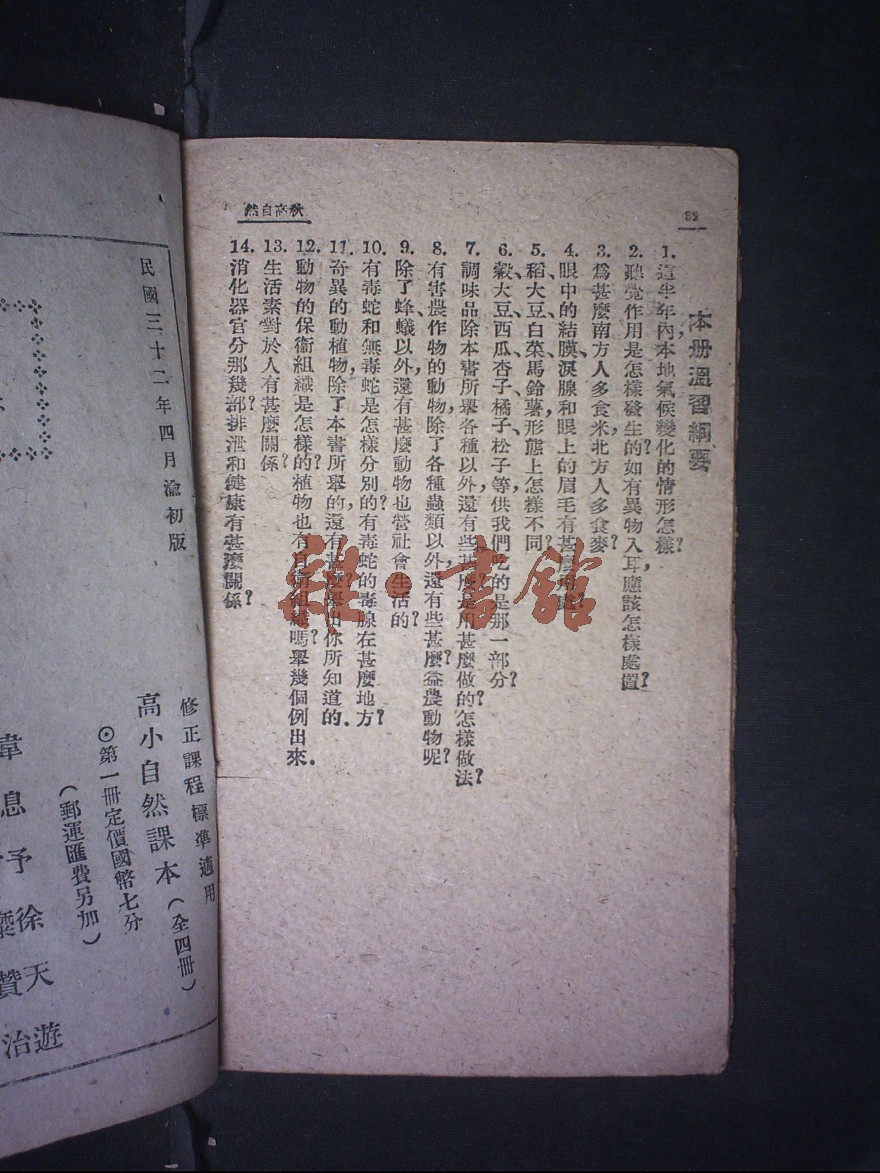 32
秋高自然
本册溫習綱要
1. 這半年內，本地氣候變化的情形怎樣？
2. 聽覺作用是怎樣發生的？如有異物入耳，應該怎樣處置？
3. 爲甚麼南方人多食米，北方人多食麥？
4. 眼中的結膜、淚腺和眼上的眉毛有甚麼
5. 稻、大豆、白菜、馬鈴薯，形態上怎樣不同？
6. 穀、大豆、西瓜、杏子、橘子、松子等，供我們吃的是那一部分？
7. 調味品除本書所舉各種以外，還有些甚麼？是用甚麼做的？怎樣做法？
8. 有害農作物的動物，除了各種蟲類以外，還有些甚麼？益農動物呢？
9. 除了蜂蟻以外，還有甚麼動物也營社會生活的？
10. 有毒蛇和無毒蛇是怎樣分別的？有毒蛇的毒腺在甚麼地方？
11. 奇異的動植物，除了本書所舉的，還有甚麼？舉出你所知道的.
12. 動物的保衞組織是怎樣的？植物也有自衞組織嗎？舉幾個例出來.
13. 生活素對於人有甚麼關係？
14. 消化器官分那幾部？排泄和健康有甚麼關係？
修正課程標準適用
高小自然課本（全四冊）
◎第一冊定價國幣七分
（郵運匯費另加）
民國三十二年四月渝初版
韋息予
徐天遊
贊治
書館